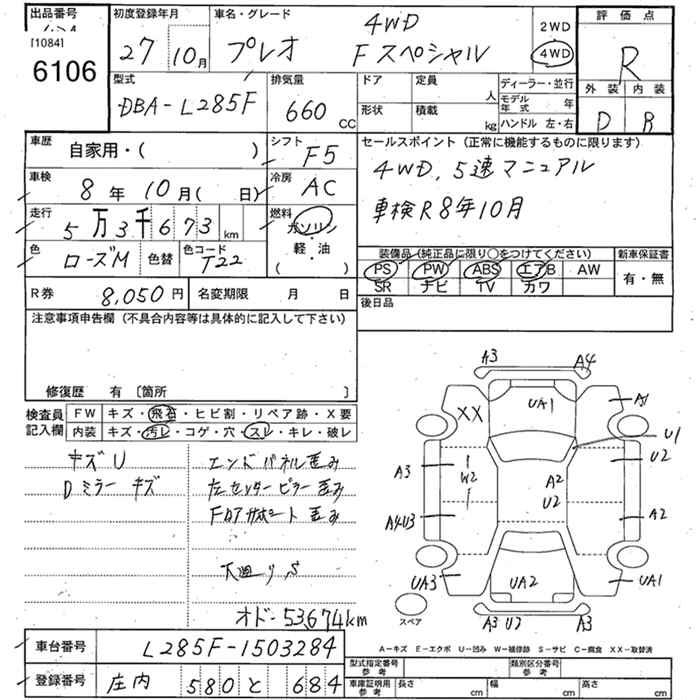 出品番号
[1084]
6106
初度登録年月
27 10月
車名・グレード
プレオ
4WD
Fスペシャル
2WD
4WD
評価点
R
外装 内装
D B
型式
DBA-L285F
排気量
660 cc
ドア 定員 人
形状 積載 kg
ディーラー・並行
モデル年式 年
ハンドル 左・右
車歴 自家用・( )
シフト F5
セールスポイント (正常に機能するものに限ります)
4WD, 5速マニュアル
車検R8年10月
車検 8年 10月( 日)
冷房 AC
走行 5万3千673km
燃料 ガソリン
軽・油
( )
色 ローズM 色替
色コード T22
装備品 (純正品に限り○をつけてください)
PS PW ABS エアB AW
SR ナビ TV カワ
新車保証書
有・無
R券 8,050円
名変期限 月 日
後日品
注意事項申告欄 (不具合内容等は具体的に記入して下さい)
修復歴 有 [箇所 ]
検査員記入欄
FW キズ・飛石・ヒビ割・リペア跡・X要
内装 キズ・汚レ・コゲ・穴・スレ・キレ・破レ
キズU
Dミラー キズ
エンドパネル歪み
左センターピラー歪み
下廻りS
オドー53,674km
A3 A4
XX UA1 A1
U1
U2
A3 W2 A2
U2
A4U3 A2
UA3 UA2 UA1
A3 U2 A3
スペア
A-キズ E-エクボ U-凹み W-補修跡 S-サビ C-腐食 XX-取替済
車台番号 L285F-1503284
登録番号 庄内 580 と 684
型式指定番号 参考
類別区分番号 参考
車庫証明用 参考
長さ cm
幅 cm
高さ cm